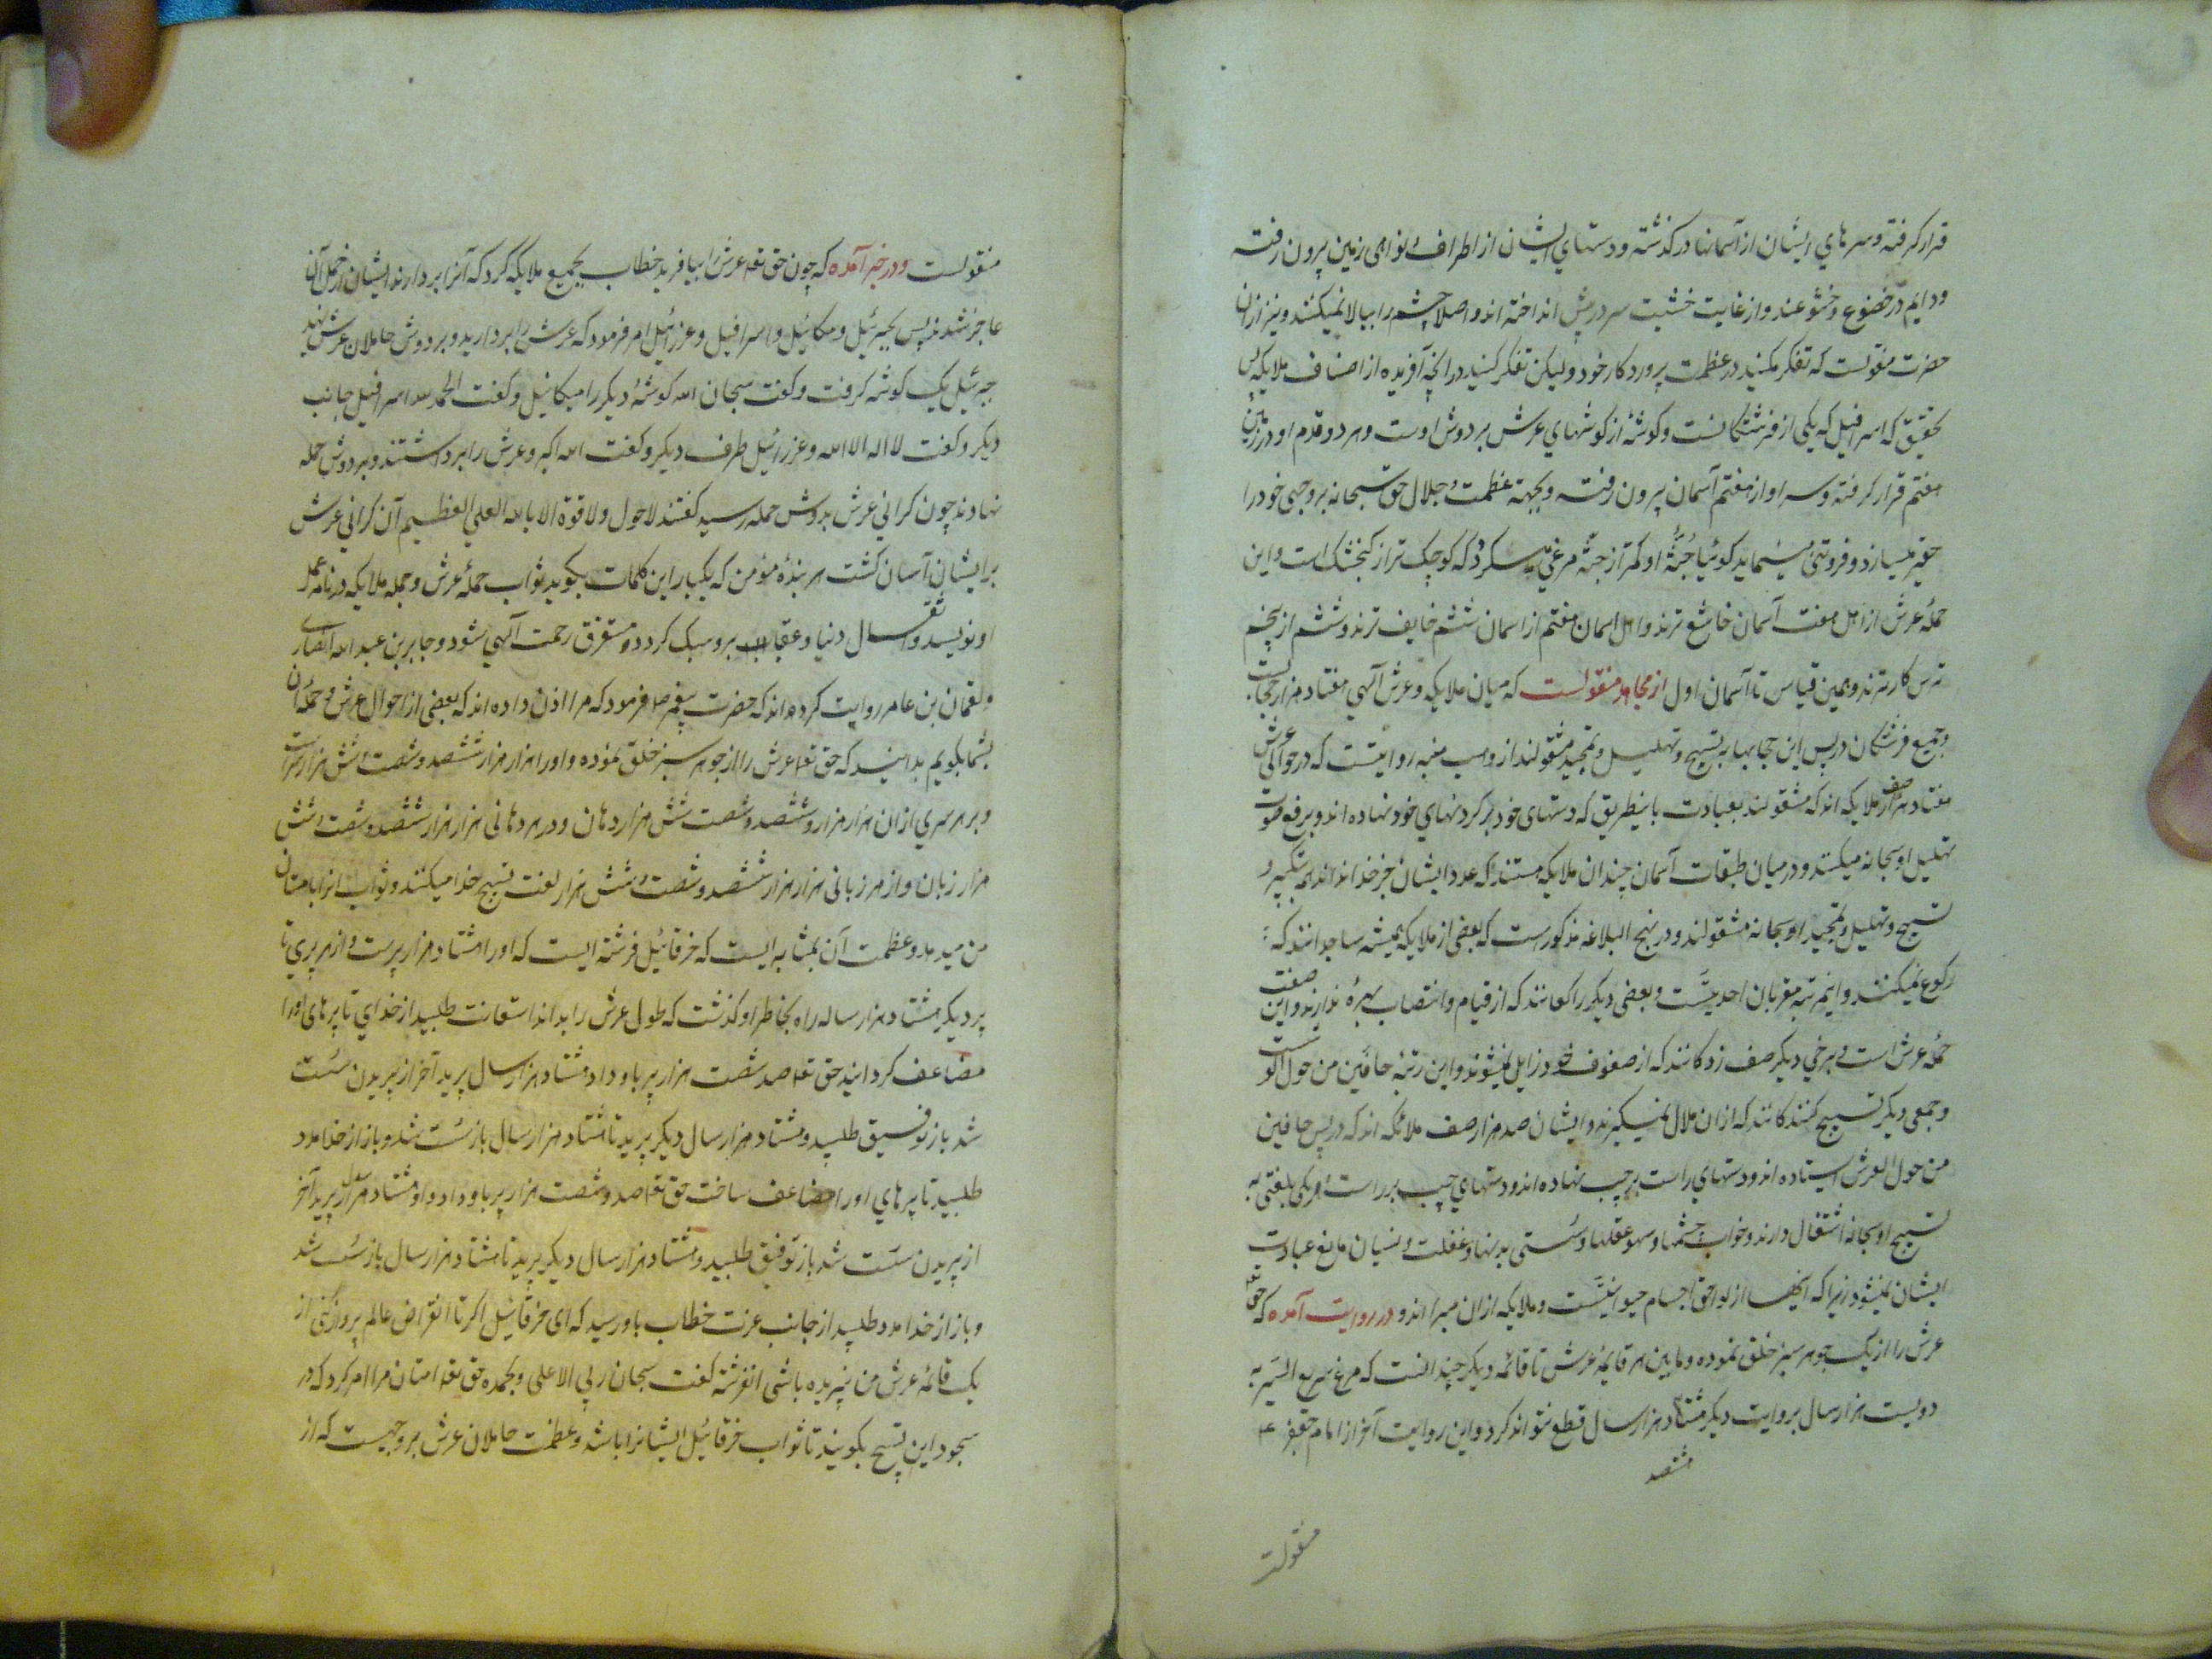 قرار کرفته و سرهای ایشان از آسمانها در کذشته و دستهای ایشان از اطراف و نواحی زمین بیرون رفته
و دایم در خضوع و خشوعند و از غایت خشیت سر در پیش انداخته اند و اصلا چشم را ببالا نمیکنند و نیز از ان
حضرت منقولست که تفکر مکنید در عظمت پروردکار خود و لیکن تفکر کنید در انچه آفریده از اصناف ملایکه پس
بحقیق که اسرافیل که یکی از فرشتکانست و کوشهٔ از کوشهای عرش بر دوش اوست و هر دو قدم او در زمین
هفتم قرار کرفته و سر او از هفتم آسمان بیرون رفته و بجهة عظمت و جلال حق سبحانه بر وجهی خود را
حقیر میسازد و فروتنی مینماید کوئیا جثهٔ او کمتر از جثهٔ مرغی میکردد که کوچک تر از کنجشک است و این
حملهٔ عرش از اهل هفت آسمان خاشع ترند و اهل اسمان هفتم از اسمان ششم خایف ترند و ششم از پنجم
ترس کارترند و بهمین قیاس تا آسمان اول از مجاهد منقولست که میان ملایکه و عرش آلهی هفتاد هزار حجابست
و جمیع فرشتکان در پس این حجابها به تسبیح و تهلیل و تمجید مشغولند از وهب منبه روایتست که در حوالی عرش
هفتاد هزار صف ملایکه اند که مشغولند بعبادت باینطریق که دستهای خود بر کردنهای خود نهاده اند و برفع صوت
تهلیل او سبحانه میکنند و در میان طبقات آسمان چندان ملایکه هستند که عدد ایشان جز خدا نداند همه بتکبیر و
تسبیح و تهلیل و تمجید او سبحانه مشغولند و در نهج البلاغه مذکور است که بعضی از ملایکه همیشه ساجدانند که
رکوع نمیکنند و اینمرتبه مقربان احدیتست و بعضی دیکر راکعانند که از قیام و انتصاب بهرهٔ ندارند و این صفت
حملهٔ عرش است و برخی دیکر صف زدکانند که از صفوف خود زایل نمیشوند و این رتبهٔ حافین من حول العرشست
و جمعی دیکر تسبیح کنندکانند که ازان ملال نمیکیرند و ایشان صد هزار صف ملائکه اند که در پس حافین
من حول العرش ایستاده اند و دستهای راست بر چپ نهاده اند و دستهای چپ بر راست و هر یکی بلغتی به
تسبیح او سبحانه اشتغال دارند و خواب چشمها و سهو عقلها و سستی بدنها و غفلت و نسیان مانع عبادت
ایشان نمیشود زیرا که اینها از لواحق اجسام حیوانیتست و ملایکه ازان مبرااند و در روایت آمده که حق تعه
عرش را از یک جوهر سبز خلق نموده و مابین هر قایمهٔ عرش تا قائمه دیکر چندانست که مرغ سریع السیر به
دویست هزار سال بروایت دیکر هشتاد هزار سال قطع نتواند کرد و این روایت آخر از امام جعفر ع
هشتصد
منقولست
منقولست و در خبر آمده که چون حق تعه عرش را بیافرید خطاب بجمیع ملایکه کرد که آنرا بردارند ایشان از حمل آن
عاجز شدند پس بجبرئیل و میکائیل و اسرافیل و عزرائیل امر فرمود که عرش را بردارید و بر دوش حاملان عرش نهید
جبرئیل یک کوشه کرفت و کفت سبحان الله کوشهٔ دیکر را میکائیل و کفت الحمد لله اسرافیل جانب
دیکر و کفت لا اله الا الله و عزرائیل طرف دیکر و کفت الله اکبر و عرش را برداشتند و بر دوش حمله
نهادند چون کرانی عرش بدوش حمله رسید کفتند لا حول و لا قوة الا بالله العلی العظیم آن کرانی عرش
بر ایشان آسان کشت هر بندهٔ مؤمن که یکبار این کلمات بکوید ثواب حملهٔ عرش و جمله ملایکه در نامهٔ عمل
او نویسد و اثقال دنیا و عقاب برو سبک کردد و مستغرق رحمت آلهی شود و جابر بن عبد الله انصاری
و لقمان بن عامر روایت کرده اند که حضرت پیغمبر ص فرمود که مرا اذن داده اند که بعضی از احوال عرش و حملهٔ آن
بشما بکویم بدانید که حق تعه عرش را از جوهر سبز خلق نموده و او را هزار هزار و ششصد و شصت و شش هزار سر است
و بر هر سری ازان هزار هزار و ششصد و شصت شش هزار دهان و در هر دهانی هزار هزار ششصد و شصت و شش
هزار زبان و از هر زبانی هزار هزار ششصد و شصت و شش هزار لغت تسبیح خدا میکنند و ثواب انرا بامتان
من میدهد و عظمت آن بمثابه ایست که خرقائیل فرشته ایست که او را هشتاد هزار پرست و از هر پری تا
پر دیکر هشتاد هزار ساله راه بخاطر او کذشت که طول عرش را بداند استعانت طلبید از خدای تا پرهای او را
مضاعف کرداند حق تعه صد شصت هزار پر باو داد هشتاد هزار سال پرید آخر از پریدن سست
شد باز توفیق طلبید و هشتاد هزار سال دیکر پرید تا هشتاد هزار سال باز سست شد و باز از خدا مدد
طلبید تا پرهای او را مضاعف ساخت حق تعه صد و شصت هزار پر باو داد و او هشتاد هزار سال پرید آخر
از پریدن سست شد باز توفیق طلبید و هشتاد هزار سال دیکر پرید تا هشتاد هزار سال باز سست شد
و باز از خدا مدد طلبید از جانب عزت خطاب باو رسید که ای خرقائیل اکر تا انقراض عالم پرواز کنی از
یک قائمهٔ عرش من نپریده باشی انفرشته کفت سبحان ربی الاعلی و بحمده حق تعه امتان مرا امر کرد که در
سجود این تسبیح بکویند تا ثواب خرقائیل ایشانرا باشد و عظمت حاملان عرش بر وجهیست که از